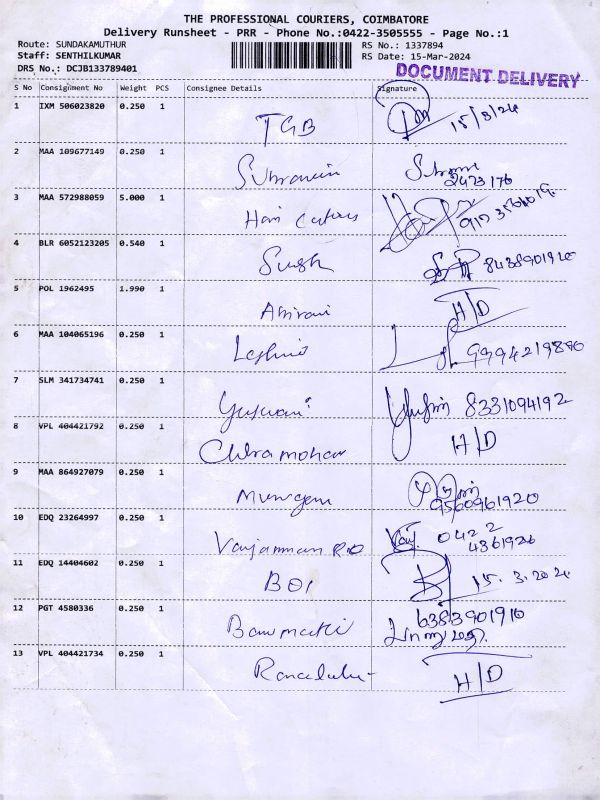 THE PROFESSIONAL COURIERS, COIMBATORE
Delivery Runsheet - PRR - Phone No.:0422-3505555 - Page No.:1
Route: SUNDAKAMUTHUR RS No.: 1337894
Staff: SENTHILKUMAR RS Date: 15-Mar-2024
DRS No.: DCJB133789401
DOCUMENT DELIVERY
S No Consignment No Weight PCS Consignee Details Signature
1 IXM 506023820 0.250 1 TGB 15/3/24
2 MAA 109677149 0.250 1
2423176
3 MAA 572988059 5.000 1 Hari
4 BLR 6052123205 0.540 1
5 POL 1962495 1.990 1 H/D
6 MAA 104065196 0.250 1 9994219880
7 SLM 341734741 0.250 1 8331094192
8 VPL 404421792 0.250 1 Chira mohan H/D
9 MAA 864927079 0.250 1 Murugan
9560961920
10 EDQ 23264997 0.250 1 0422
4361926
11 EDQ 14404602 0.250 1 BOI 15.3.2024
12 PGT 4580336 0.250 1 6383901910
13 VPL 404421734 0.250 1 H/D